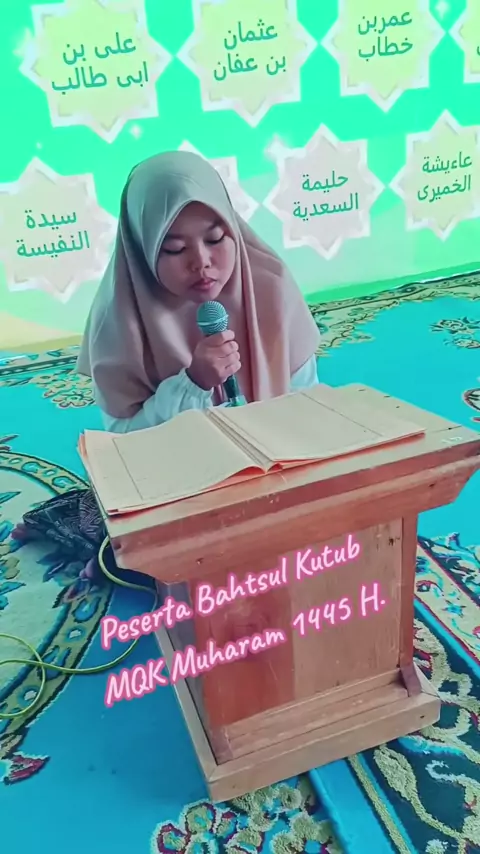 عمربن
خطاب
عثمان
بن عفان
على بن
ابى طالب
عاءيشة
الخميرى
حليمة
السعدية
سيدة
النفيسة
Peserta Bahtsul Kutub
MQK Muharam 1445 H.